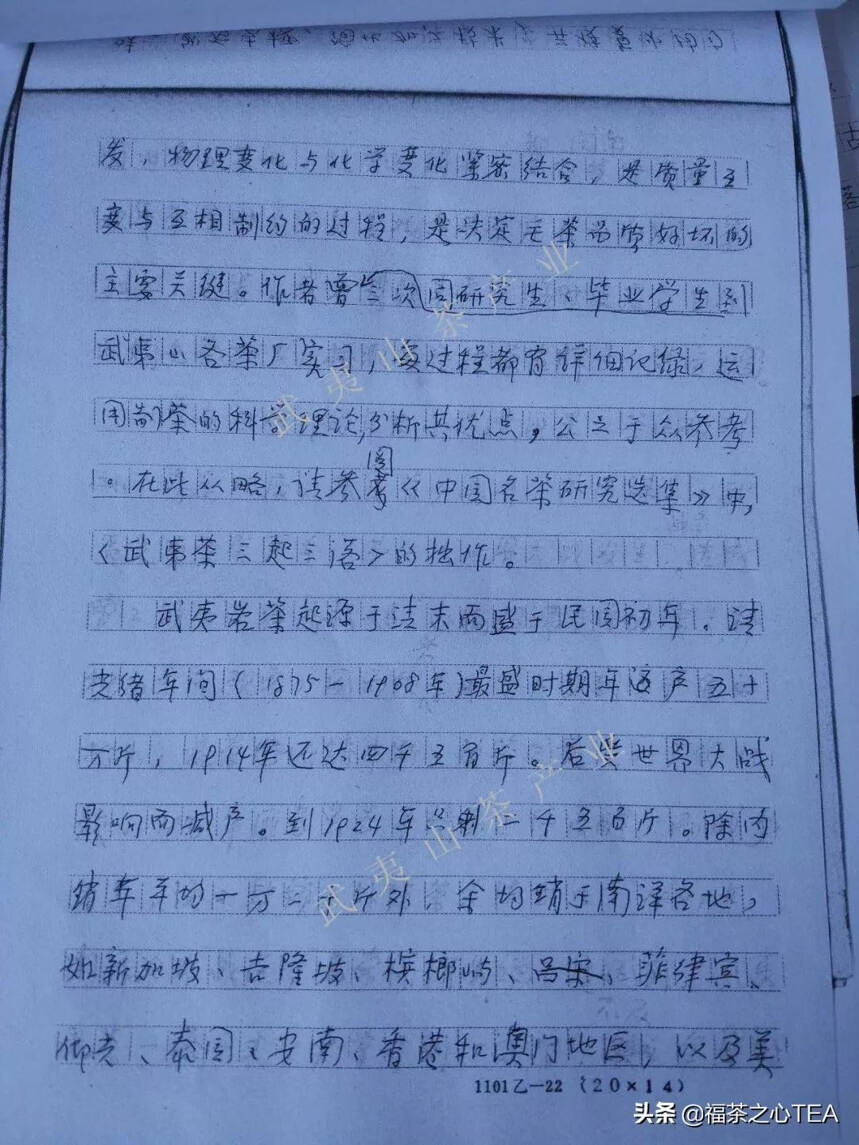 发，物理变化与化学变化紧密结合，是质量互
变与互相制约的过程，是决定毛茶品质好坏的
主要关键。作者曾三次同研究生、毕业学生到
武夷山各茶厂实习，每过程都有详细记录，运
用制茶的科学理论，分析其优点，公之于众参考
。在此从略，请参图《中国名茶研究选集》中，
《武夷茶三起三落》的拙作。
武夷岩茶起源于清末而盛于民国初年。清
光绪年间（1875—1908年）最盛时期年产五十
万斤，1914年还达四千五百斤。后世界大战
影响而减产。到1924年剩一千五百斤。除内
销年平均一万二千斤外，余均销于南洋各地，
如新加坡、吉隆坡、槟榔屿、吕宋、菲律宾、
仰光、泰国、安南、香港和澳门地区，以及美
1101乙—22 （20×14）
武夷山茶产业
武夷山茶产业
头条 @福茶之心TEA